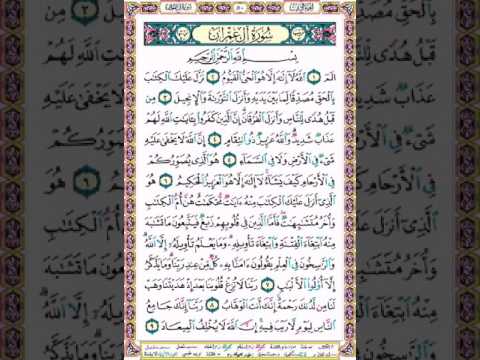 سُورَةُ آلِ عِمْرَانَ
بِسْمِ اللَّهِ الرَّحْمَٰنِ الرَّحِيمِ
الٓمٓ ١ اللَّهُ لَآ إِلَٰهَ إِلَّا هُوَ الْحَيُّ الْقَيُّومُ ٢ نَزَّلَ عَلَيْكَ الْكِتَٰبَ
بِالْحَقِّ مُصَدِّقًا لِّمَا بَيْنَ يَدَيْهِ وَأَنزَلَ التَّوْرَىٰةَ وَالْإِنجِيلَ ٣ مِن
قَبْلُ هُدًى لِّلنَّاسِ وَأَنزَلَ الْفُرْقَانَ إِنَّ الَّذِينَ كَفَرُوا بِـَٔايَٰتِ اللَّهِ لَهُمْ
عَذَابٌ شَدِيدٌ وَاللَّهُ عَزِيزٌ ذُو انتِقَامٍ ٤ إِنَّ اللَّهَ لَا يَخْفَىٰ عَلَيْهِ
شَىْءٌ فِى الْأَرْضِ وَلَا فِى السَّمَآءِ ٥ هُوَ الَّذِى يُصَوِّرُكُمْ
فِى الْأَرْحَامِ كَيْفَ يَشَآءُ لَآ إِلَٰهَ إِلَّا هُوَ الْعَزِيزُ الْحَكِيمُ ٦ هُوَ
الَّذِىٓ أَنزَلَ عَلَيْكَ الْكِتَٰبَ مِنْهُ ءَايَٰتٌ مُّحْكَمَٰتٌ هُنَّ أُمُّ الْكِتَٰبِ
وَأُخَرُ مُتَشَٰبِهَٰتٌ فَأَمَّا الَّذِينَ فِى قُلُوبِهِمْ زَيْغٌ فَيَتَّبِعُونَ مَا تَشَٰبَهَ
مِنْهُ ابْتِغَآءَ الْفِتْنَةِ وَابْتِغَآءَ تَأْوِيلِهِ وَمَا يَعْلَمُ تَأْوِيلَهُ إِلَّا اللَّهُ
وَالرَّٰسِخُونَ فِى الْعِلْمِ يَقُولُونَ ءَامَنَّا بِهِ كُلٌّ مِّنْ عِندِ رَبِّنَا وَمَا يَذَّكَّرُ
إِلَّآ أُولُوا الْأَلْبَٰبِ ٧ رَبَّنَا لَا تُزِغْ قُلُوبَنَا بَعْدَ إِذْ هَدَيْتَنَا وَهَبْ
لَنَا مِن لَّدُنكَ رَحْمَةً إِنَّكَ أَنتَ الْوَهَّابُ ٨ رَبَّنَآ إِنَّكَ جَامِعُ
النَّاسِ لِيَوْمٍ لَّا رَيْبَ فِيهِ إِنَّ اللَّهَ لَا يُخْلِفُ الْمِيعَادَ ٩